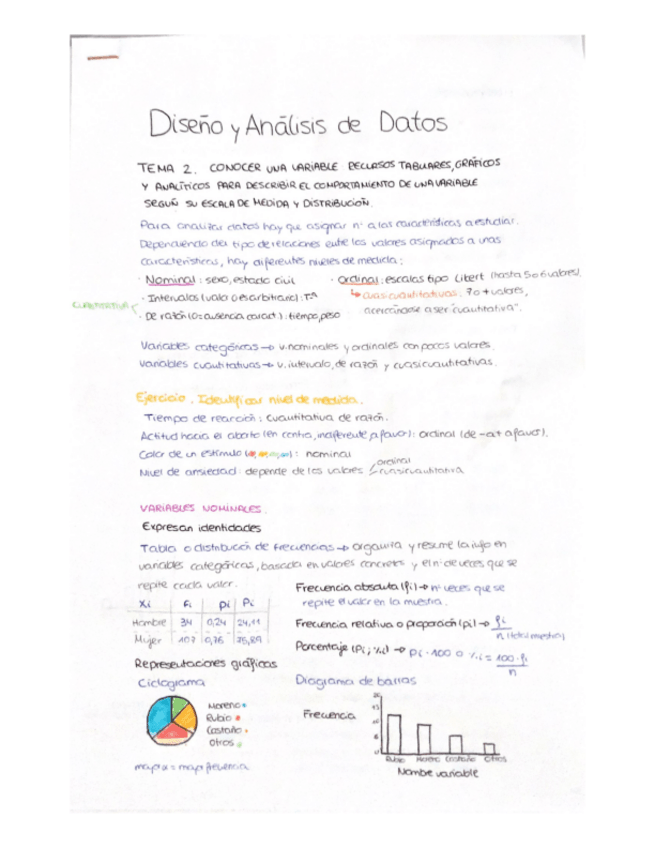 Diseño y Análisis de Datos
TEMA 2. CONOCER UNA VARIABLE RECURSOS TABULARES, GRÁFICOS
Y ANALÍTICOS PARA DESCRIBIR EL COMPORTAMIENTO DE UNA VARIABLE
SEGÚN SU ESCALA DE MEDIDA Y DISTRIBUCIÓN.
Para analizar datos hay que asignar nº a las características a estudiar.
Dependiendo del tipo de relaciones entre los valores asignados a unas
características, hay diferentes niveles de medida:
· Nominal: sexo, estado civil
· Ordinal: escalas tipo Likert (hasta 5 o 6 valores)
CUANTITATIVA
· Intervalos (valor 0 es arbitrario): Tª
↳ Cuasicuantitativas: 7 o + valores,
acercándose a ser "cuantitativa".
· De razón (0 = ausencia caract.): tiempo, peso
Variables categóricas → v. nominales y ordinales con pocos valores.
Variables cuantitativas → v. intervalo, de razón y cuasicuantitativas.
Ejercicio. Identificar nivel de medida.
Tiempo de reacción: cuantitativa de razón.
Actitud hacia el aborto (en contra, indiferente, a favor): ordinal (de - a + a favor).
Color de un estímulo: nominal
Nivel de ansiedad: depende de los valores
ordinal
cuasicuantitativa
VARIABLES NOMINALES.
Expresan identidades
Tabla o distribución de frecuencias → organiza y resume la info en
variables categóricas, basada en valores concretos y el nº de veces que se
repite cada valor.
Xi Fi pi Pi
Hombre 34 0,24 24,11
Mujer 107 0,76 75,89
Frecuencia absoluta (fi) → nº veces que se
repite el valor en la muestra.
Frecuencia relativa o proporción (pi) → fi
n (total muestra)
Porcentaje (Pi; %i) → pi · 100 o %i = 100 · fi
n
Representaciones gráficas
Ciclograma
Moreno
Rubio
Castaño
Otros
mayor α = mayor frecuencia
Diagrama de barras
Frecuencia
Rubio Moreno Castaño Otros
Nombre variable